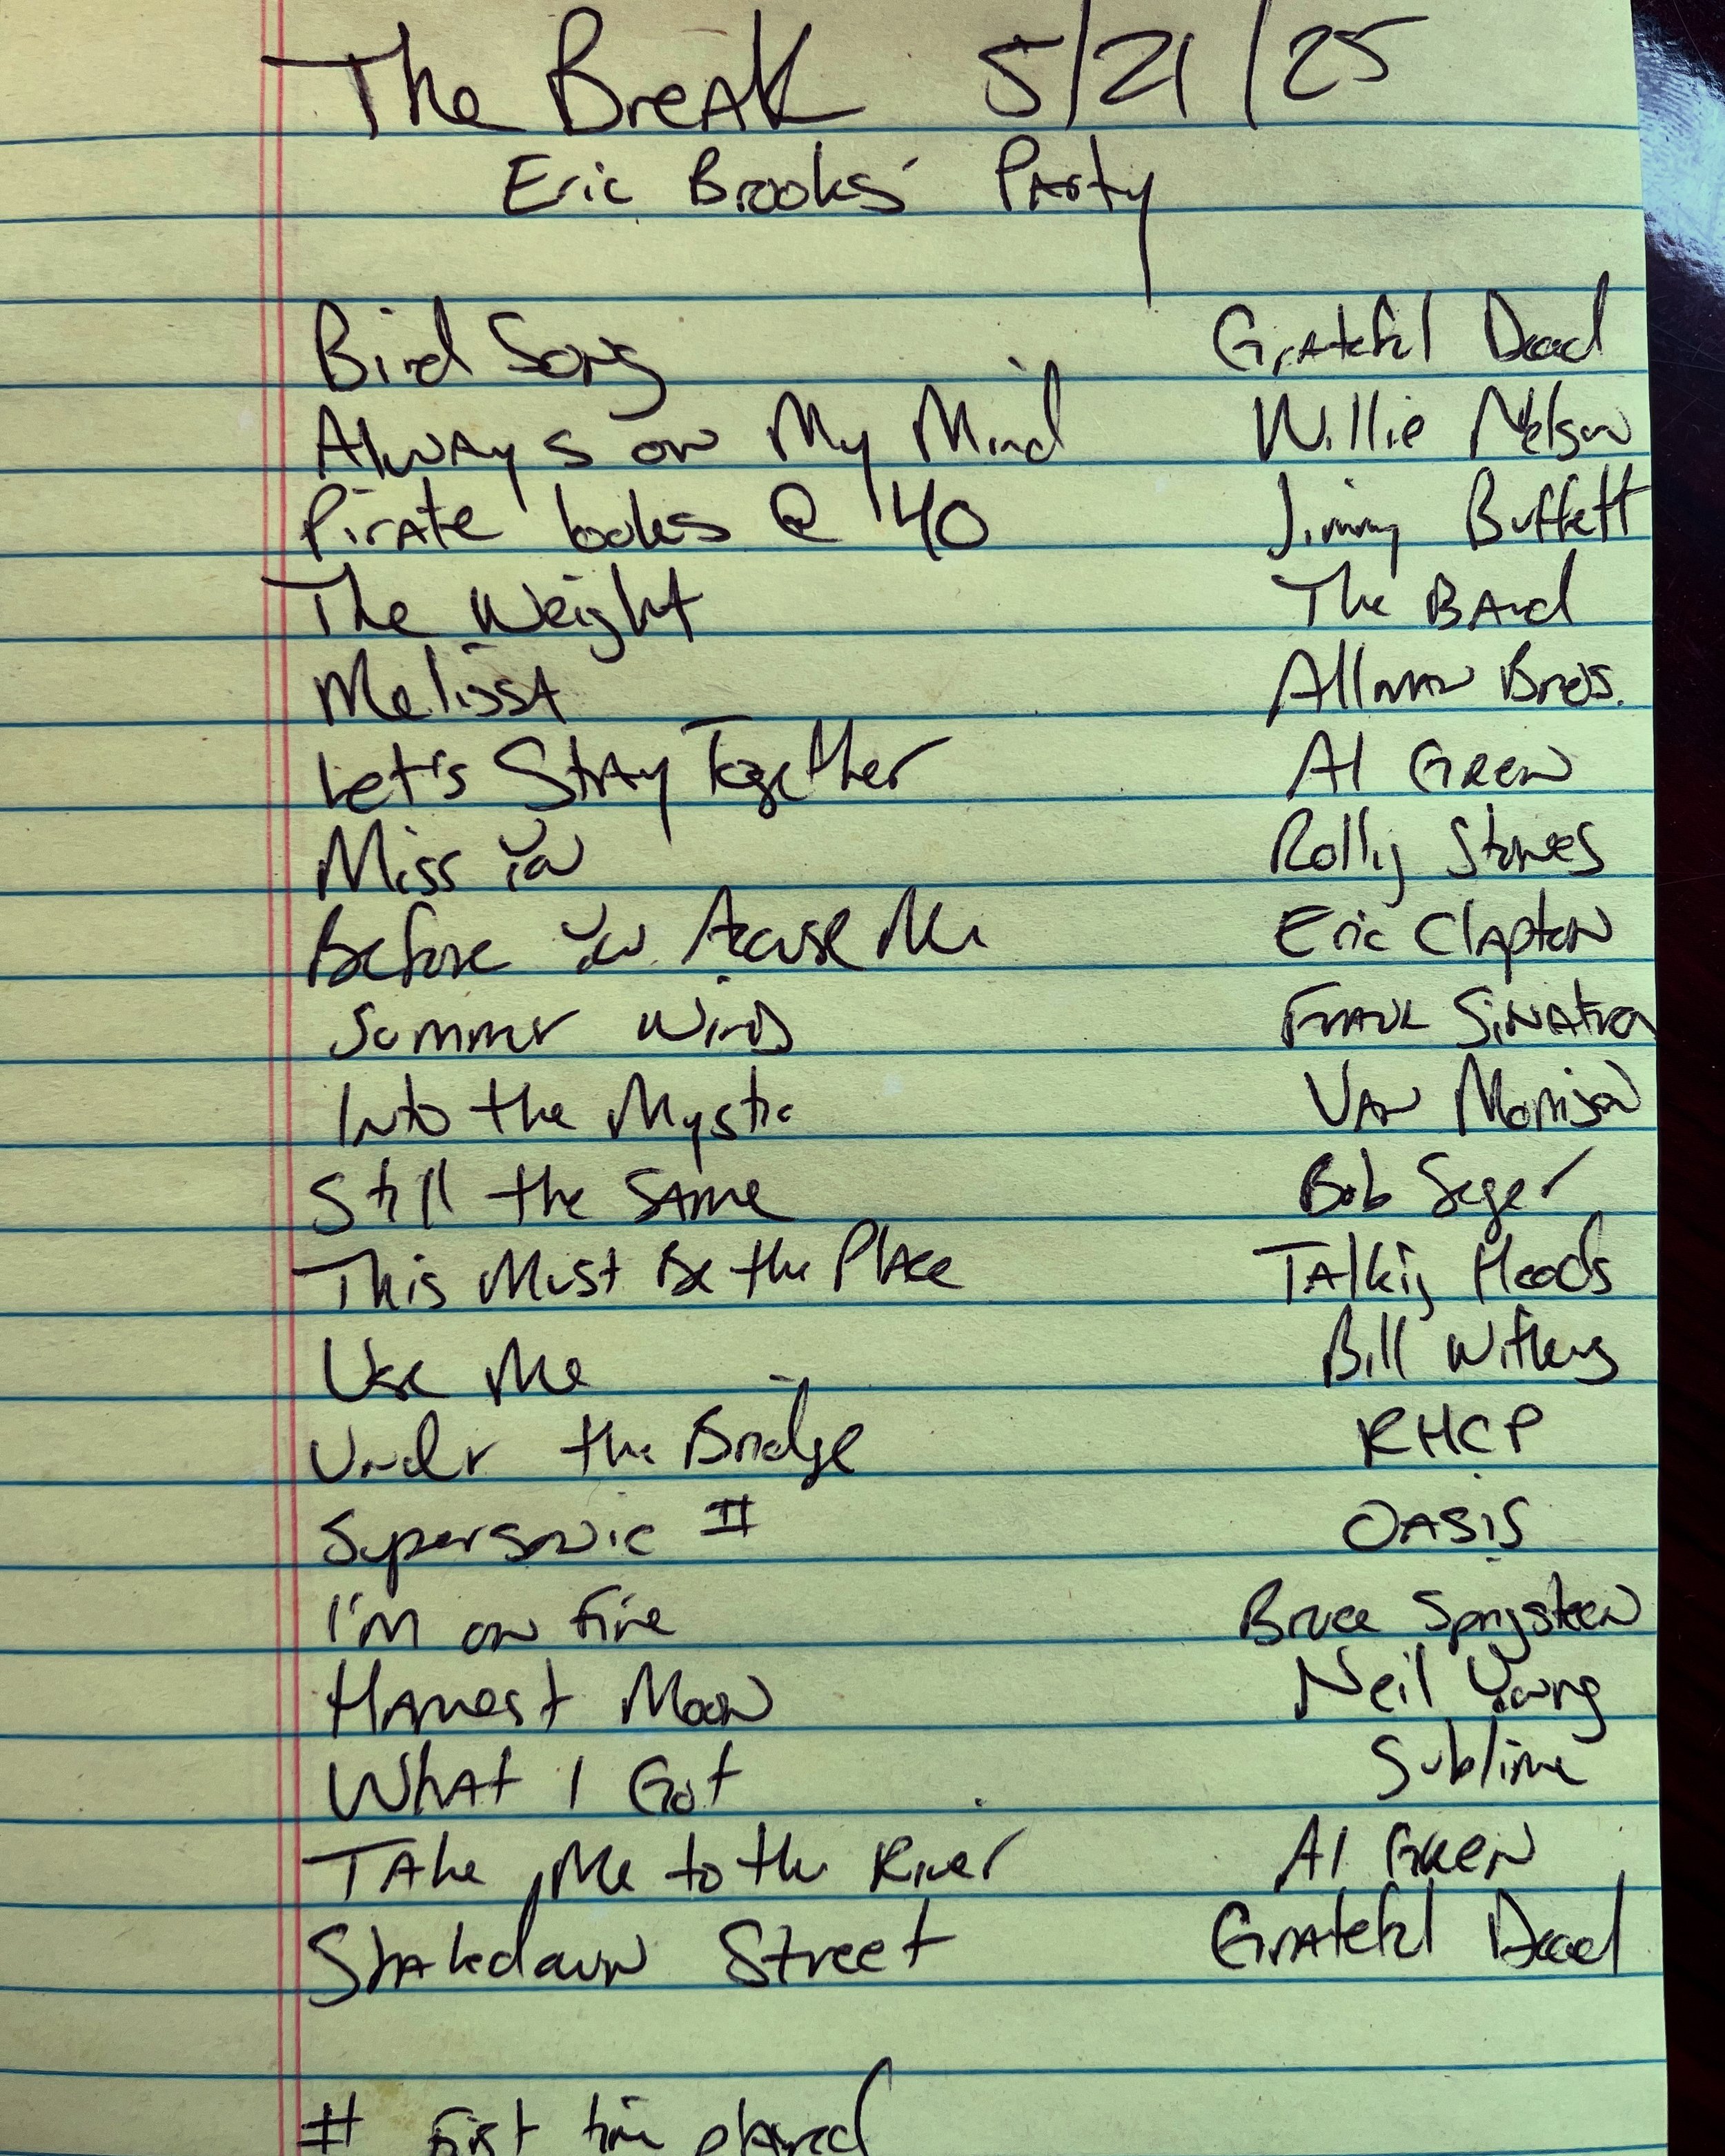 The Break 5/21/25
Eric Brooks' Party
Bird Song Grateful Dead
Always on My Mind Willie Nelson
Pirate looks @ 40 Jimmy Buffett
The Weight The Band
Melissa Allman Bros.
Let's Stay Together Al Green
Miss You Rolling Stones
Before You Accuse Me Eric Clapton
Summer Wind Frank Sinatra
Into the Mystic Van Morrison
Still the Same Bob Seger
This Must Be the Place Talking Heads
Use Me Bill Withers
Under the Bridge RHCP
Supersonic # Oasis
I'm on Fire Bruce Springsteen
Harvest Moon Neil Young
What I Got Sublime
Take Me to the River Al Green
Shakedown Street Grateful Dead
# First time played